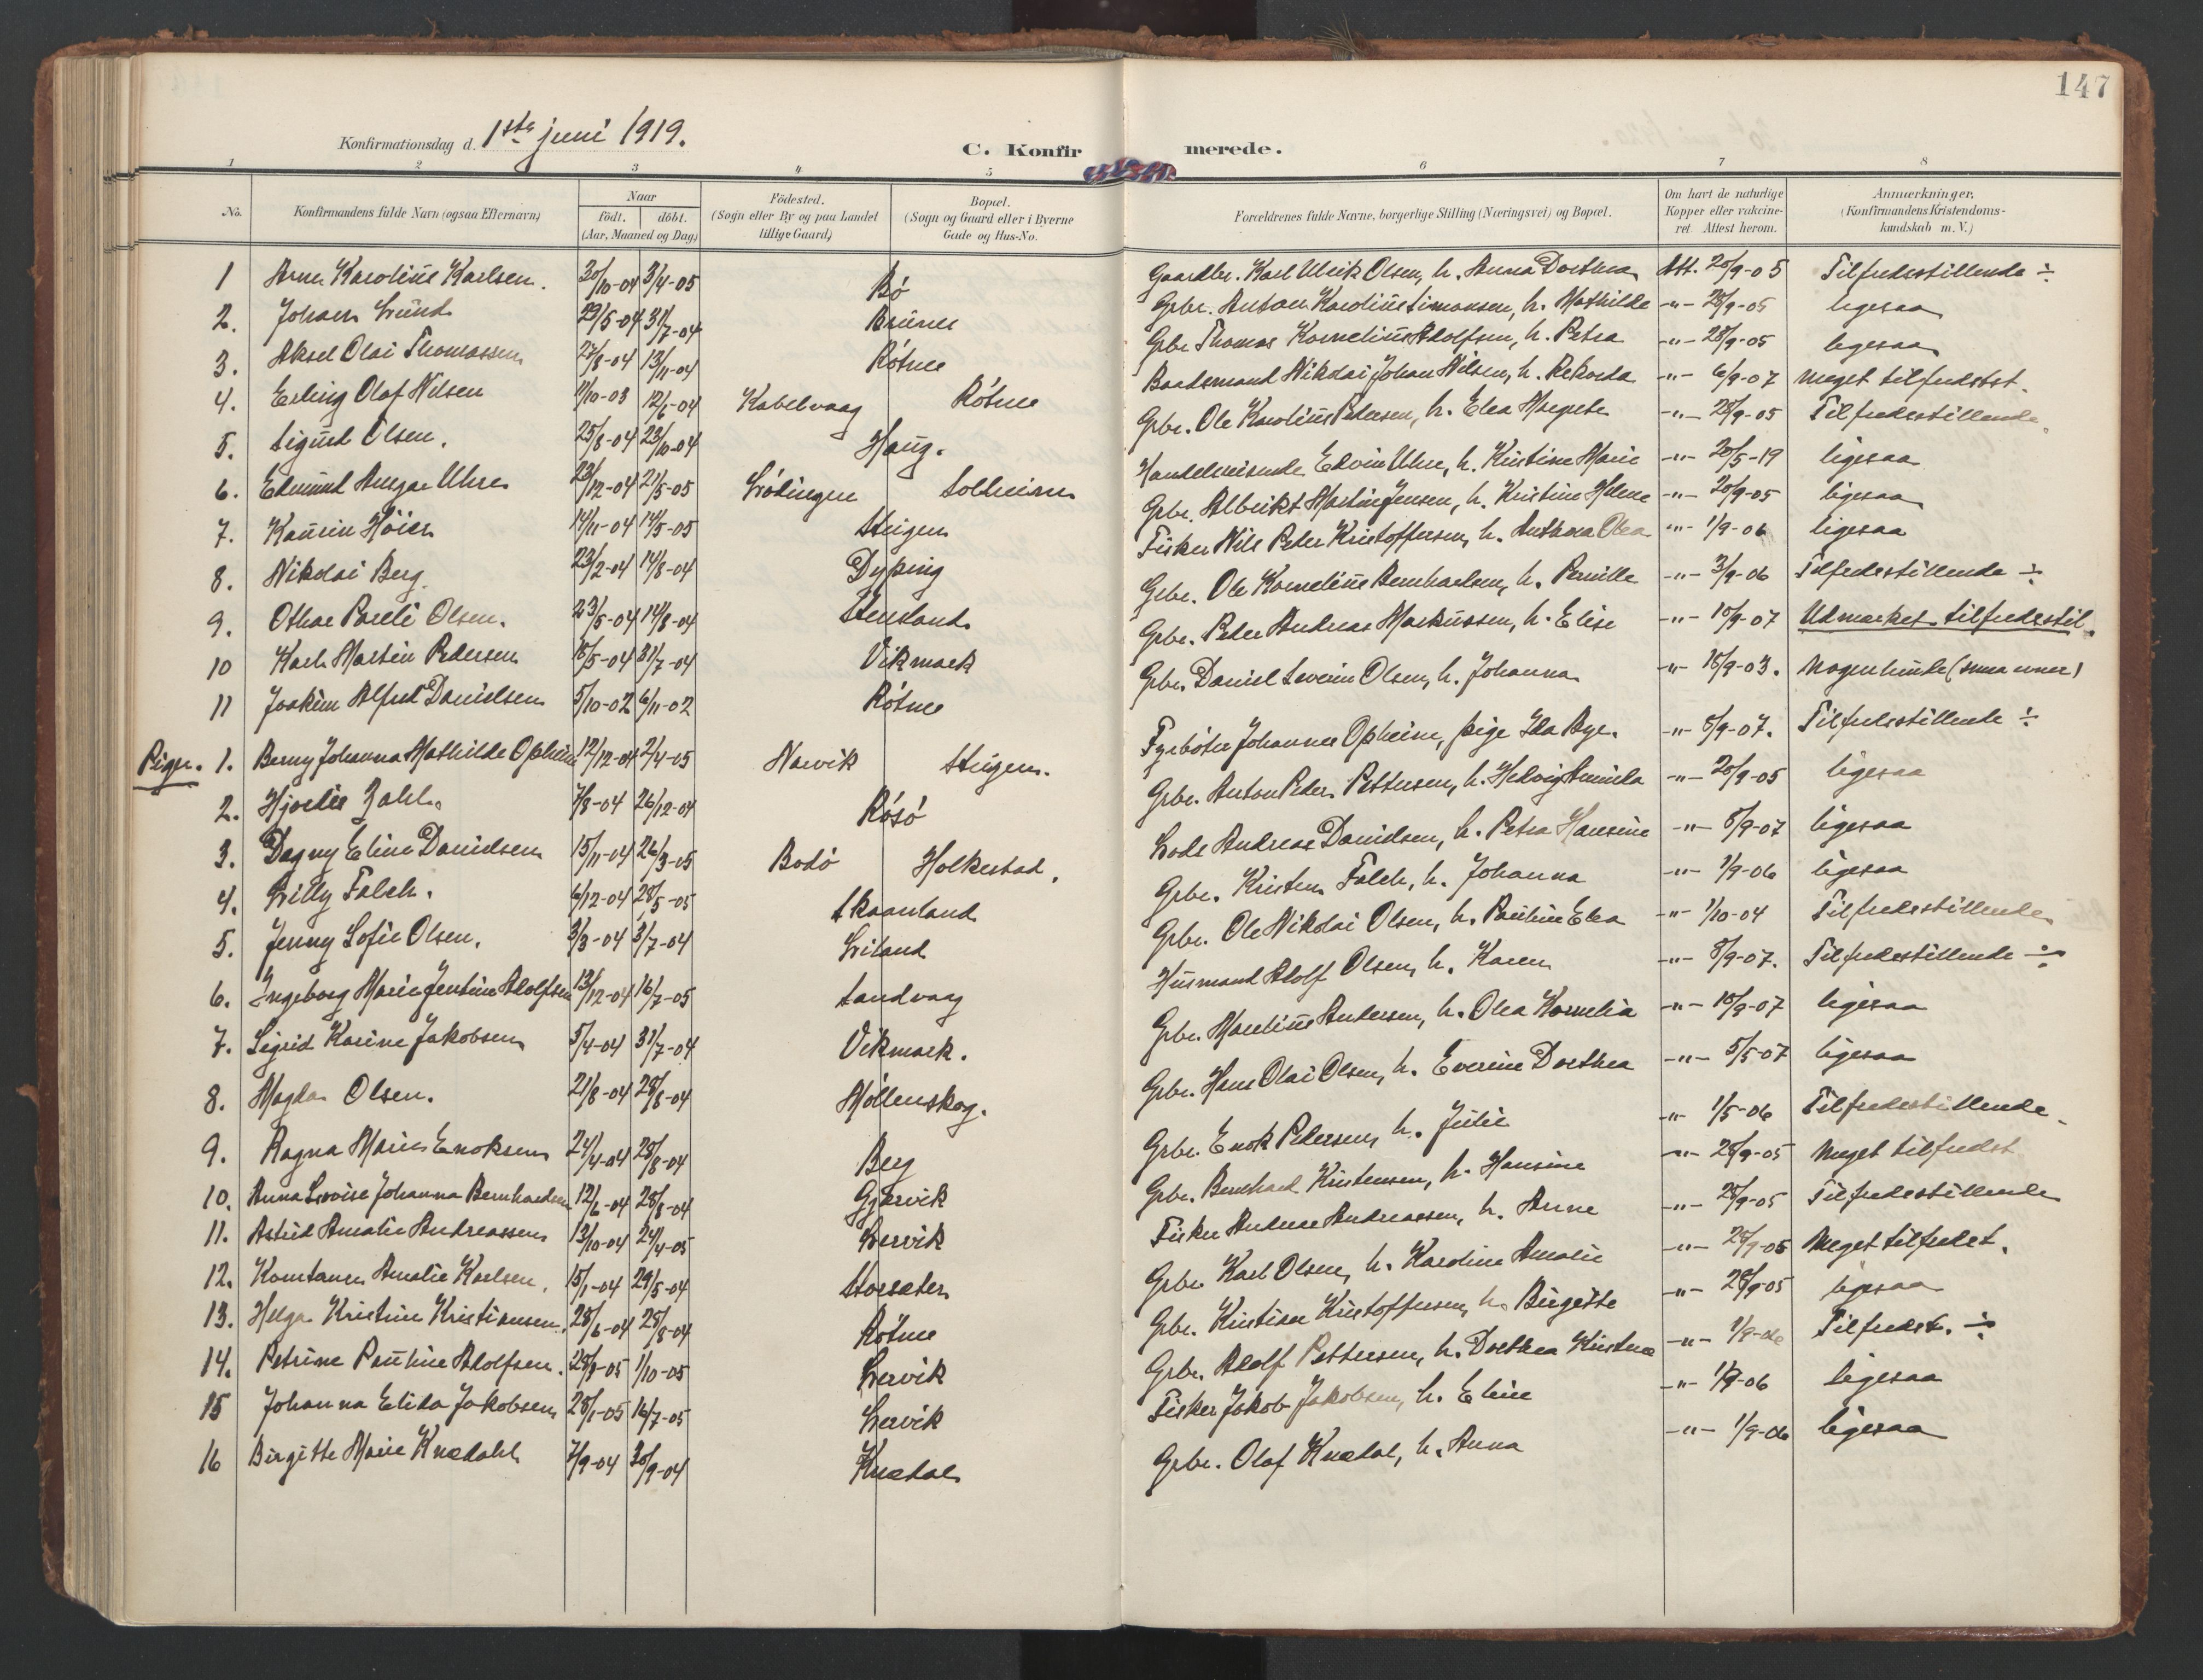 147
Konfirmationsdag d. 1ste juni 1919.
C. Konfirmerede.
1 2 3 4 5 6 7 8
No.
Konfirmandens fulde Navn (ogsaa Efternavn)
Naar
födt. döbt.
(Aar, Maaned og Dag)
Födested.
(Sogn eller By og paa Landet
tillige Gaard)
Bopæl.
(Sogn og Gaard eller i Byerne
Gade og Hus-No.
Forældrenes fulde Navne, borgerlige Stilling (Næringsvei) og Bopæl.
Om havt de naturlige
Kopper eller vakcine-
ret. Attest herom.
Anmærkninger.
(Konfirmandens Kristendoms-
kundskab m. V.)
1 Arne Karolius Karlsen. 30/10-04 3/4-05 Bø Gaardbr. Karl Ulrik Olsen, h. Anna Dorthea Att. 20/9-05 Tilfredsstillende ÷
2. Johan Lund 29/5-04 31/7-04 Brunes Grbr. Anton Karolius Simonsen, h. Mathilde -"- 28/9-05 ligesaa
3. Aksel Olai Thomassen 27/8-04 13/11-04 Røtnes Grbr Thomas Kornelius Adolfsen, h. Petra -"- 28/9-05 ligesaa
4. Erling Olaf Nilsen 11/10-03 12/6-04 Kabelvaag Røtnes Baadsmand Nikolai Johan Nilsen, h. Rekorda -"- 6/9-07 meget tilfredsst.
5. Sigurd Olsen. 25/8-04 23/10-04 Haug. Grbr. Ole Karolius Pedersen, h. Elea Margrete -"- 28/9-05 Tilfredsstillende.
6. Edmund Ansgar Uhre 23/12-04 21/5-05 Lødingen Solheim Handelsreisende Edvin Uhre, h. Kristine Marie -"- 20/5-19 ligesaa
7. Kaurin Høier 14/11-04 14/5-05 Steigen Grbr. Albrikt Martin Jensen, h. Kristine Helene -"- 20/9-05 ligesaa
8. Nikolai Berg. 23/2-04 14/8-04 Dyping Fisker Nils Peter Kristoffersen, h. Anthora Olea -"- 1/9-06 ligesaa
9. Othar Pareli Olsen. 23/5-04 14/8-04 Stensland Grbr. Ole Kornelius Bernhardsen, h. Pernille -"- 3/9-06 Tilfredsstillende ÷
10 Karl Martin Pedersen 15/5-04 31/7-04 Vikmark Grbr. Peder Andreas Markussen, h. Elise -"- 10/9-07 Udmærket tilfredsstil.
11 Joakim Alfred Danielsen 5/10-02 6/11-02 Røtnes Grbr. Daniel Severin Olsen, h. Johanna -"- 18/9-03.
Piger. 1. Berny Johanna Mathilde Opheim 12/12-04 2/4-05 Narvik Steigen. Fyrbøter Johannes Opheim, pige Ida Bye. -"- 8/9-07. Tilfredsstillende ÷
2. Hjørdis Zahl. 7/8-04 26/12-04 Røsø Grbr. Anton Peder Pettersen, h. Hedvig -"- 20/9-05 ligesaa
3. Dagny Eline Danielsen 15/11-04 26/3-05 Bodø Holkestad. Lods Andreas Danielsen, h. Petra Hansine -"- 8/9-07 ligesaa
4. Lilly Falch. 6/12-04 28/5-05 Skaanland Grbr. Kristen Falch, h. Johanna -"- 1/9-06 ligesaa
5. Jenny Sofie Olsen. 3/3-04 3/7-04 Liland Grbr. Ole Nikolai Olsen, h. Pauline Elea -"- 1/10-04 Tilfredsstillende
6. Ingeborg Marie Jentine Adolfsen 13/12-04 16/7-05 Sandvaag Husmand Adolf Olsen, h. Karen -"- 8/9-07. Tilfredsstillende ÷
7. Sigrid Karine Jakobsen 5/4-04 31/7-04 Vikmark. Grbr. Marelius Andersen, h. Olea Kornelia -"- 10/9-07 ligesaa
8. Magda Olsen. 21/8-04 28/8-04 Møllenskog. Grbr. Hans Olai Olsen, h. Everine Dorthea -"- 5/5-07 ligesaa
9. Ragna Marie Enoksen 24/4-04 28/8-04 Berg Grbr. Enok Pedersen, h. Julie -"- 1/5-06 Tilfredsstillende
10. Anna Lovise Johanna Bernhardsen 12/6-04 28/8-04 Gjærvik Grbr. Bernhard Kristensen, h. Hansine -"- 28/9-05 Meget tilfredst
11. Astrid Amalie Andreassen 13/10-04 24/4-05 Lervik Fisker Andreas Andreassen, h. Anne -"- 28/9-05 Tilfredsstillende
12. Konstanse Amalie Karlsen. 15/1-04 29/5-04 Storsæter Grbr. Karl Olsen, h. Karoline Amalie -"- 28/9-05 Meget tilfredst.
13. Helga Kristine Kristiansen. 28/6-04 28/8-04 Røtnes Grbr. Kristian Kristoffersen, h. Birgitte -"- 28/9-05 ligesaa
14. Petrine Pauline Adolfsen. 28/8-05 1/10-05 Lervik Grbr. Adolf Pettersen, h. Dorthea Kristine -"- 1/9-06 Tilfredst. ÷
15 Johanna Elida Jakobsen 28/1-05 16/7-05 Lervik Fisker Jakob Jakobsen, h. Eline -"- 1/9-06 ligesaa
16 Birgitte Marie Knædahl 7/9-04 30/9-04 Knædal Grbr. Olaf Knædal, h. Anna -"- 1/9-06 ligesaa